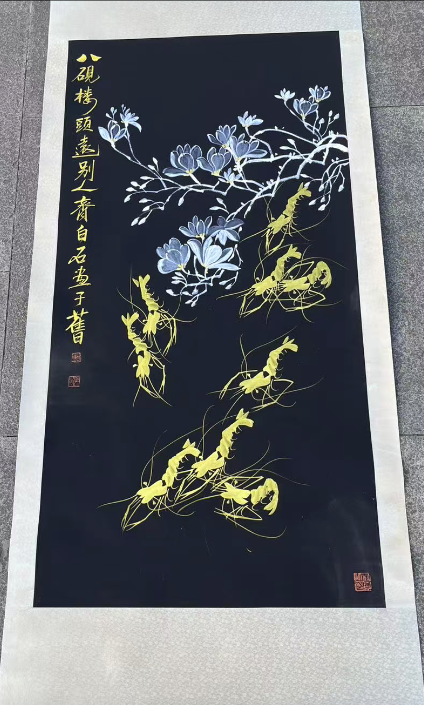 八硯樓頭遠別人齊白石畫于舊